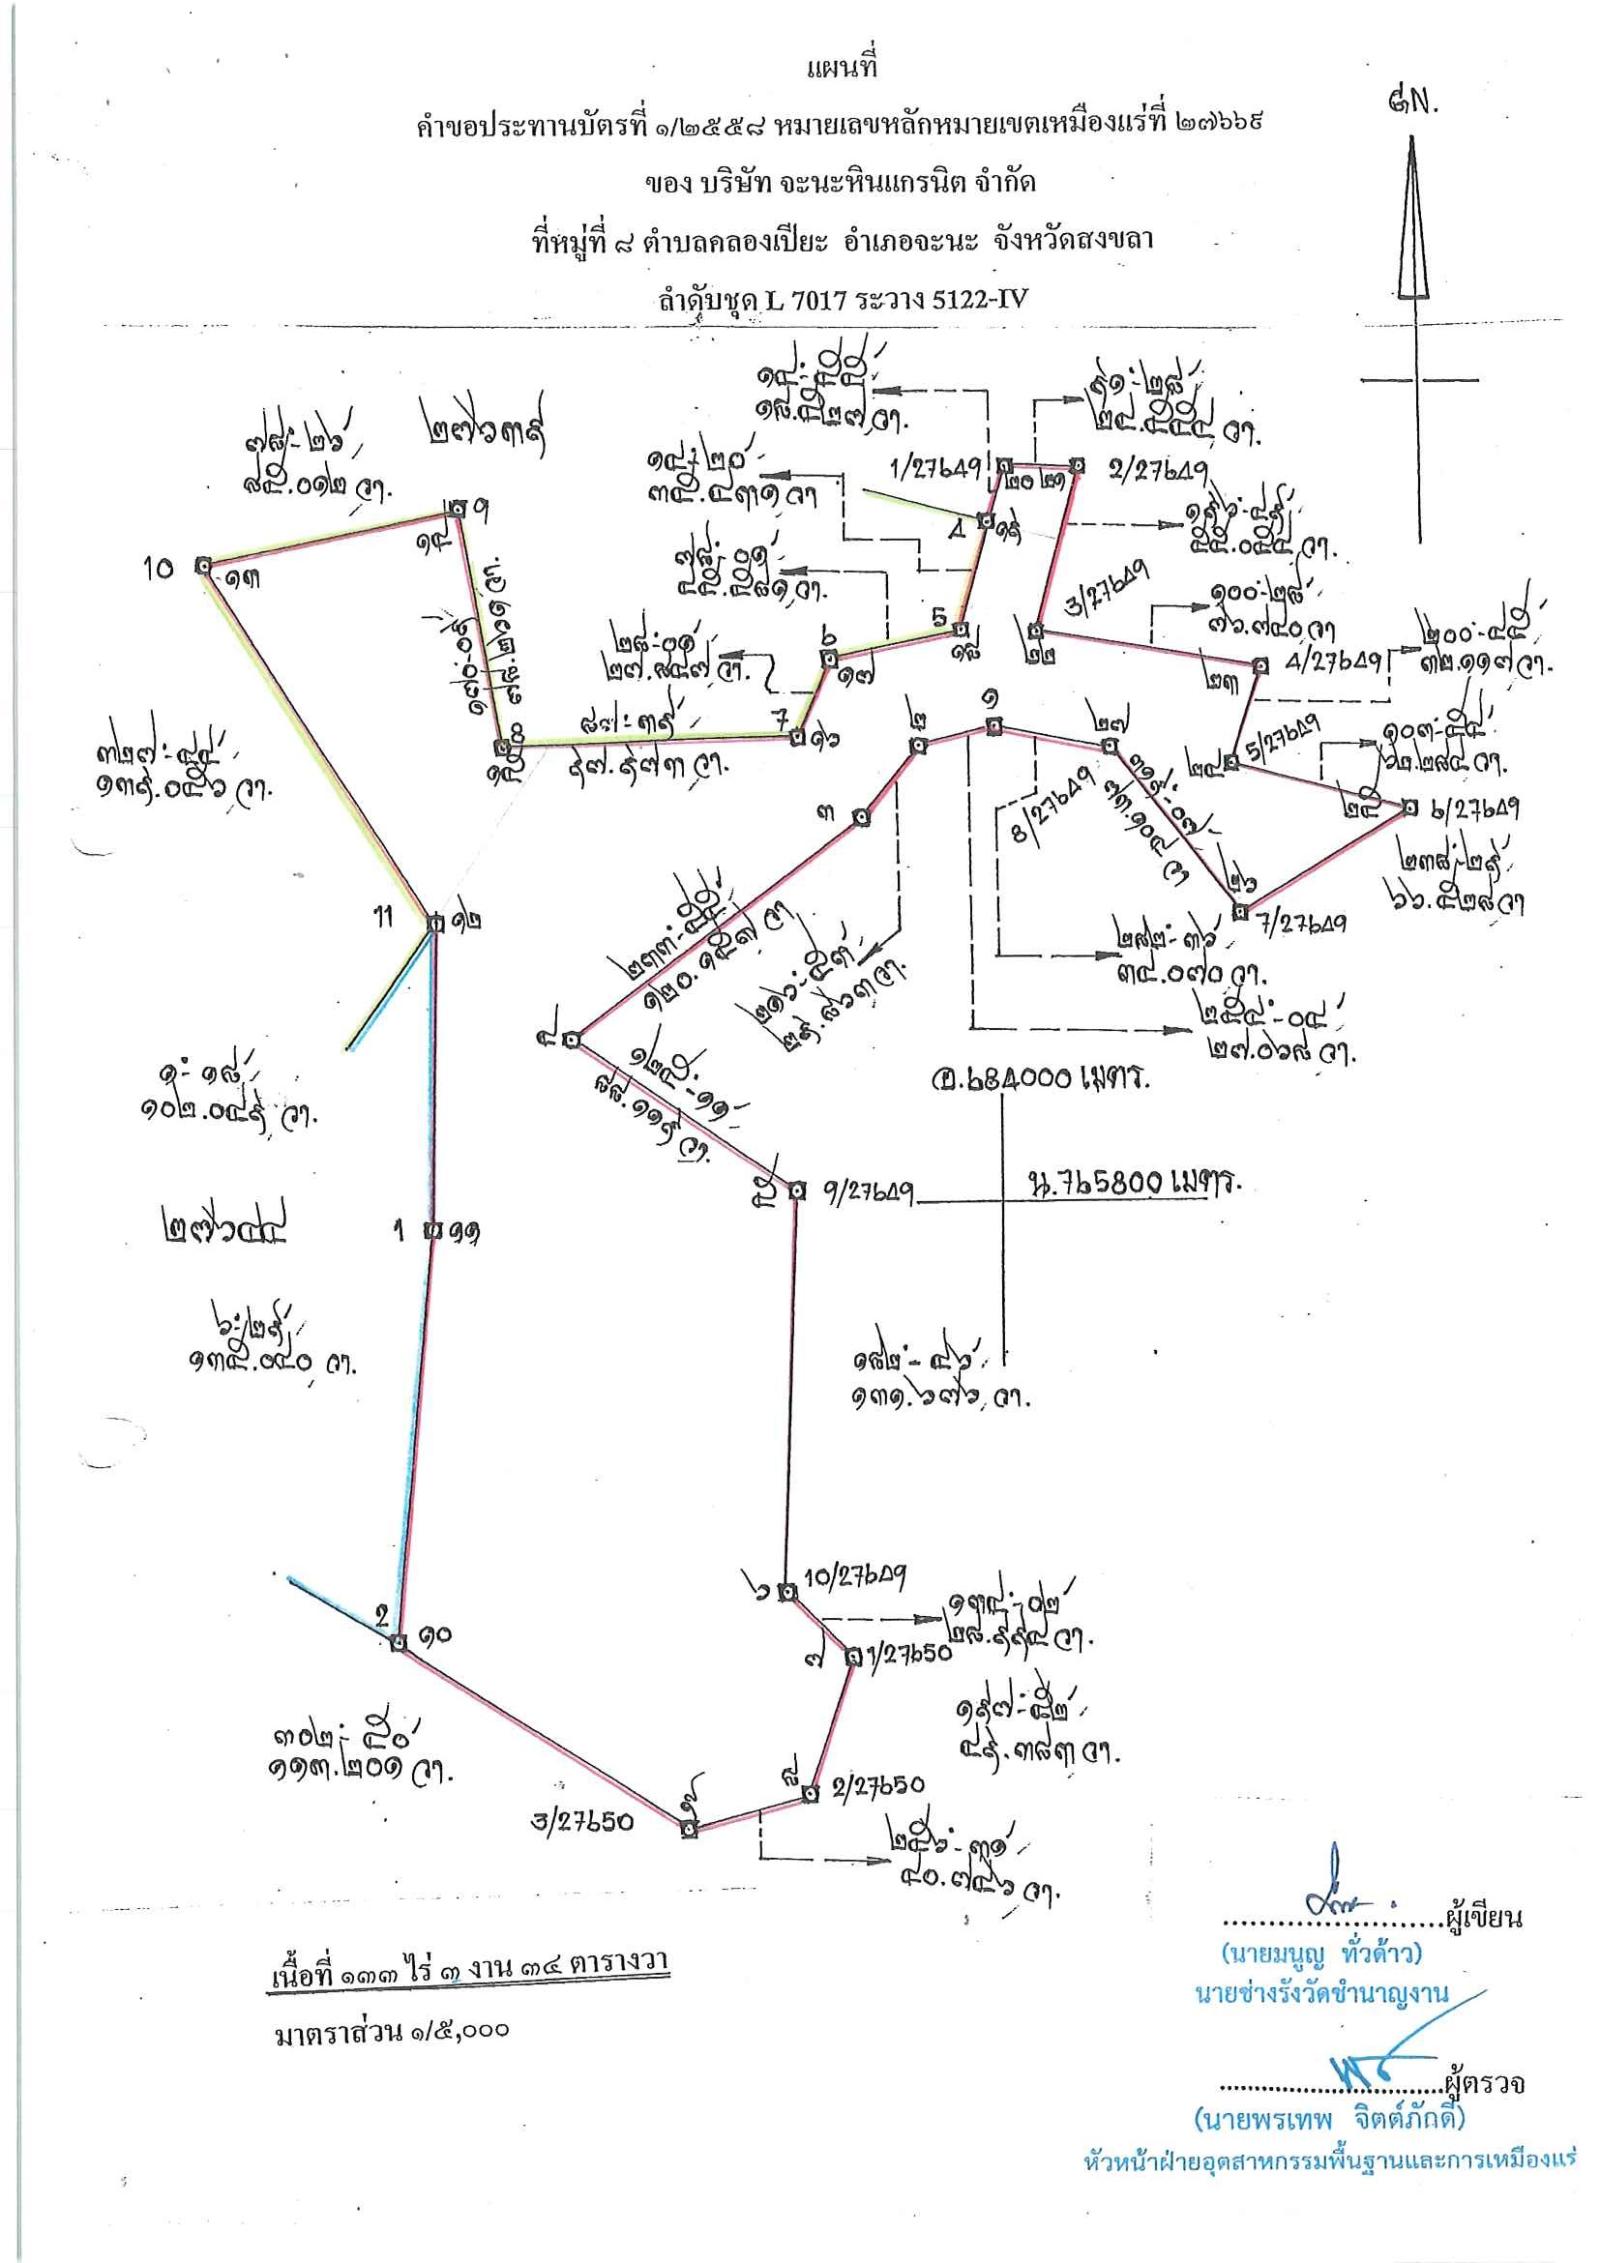 แผนที่
คำขอประทานบัตรที่ ๑/๒๕๕๘ หมายเลขหลักหมายเขตเหมืองแร่ที่ ๒๗๖๖๙
ของ บริษัท จะนะหินแกรนิต จำกัด
ที่หมู่ที่ ๘ ตำบลคลองเปียะ อำเภอจะนะ จังหวัดสงขลา
ลำดับชุด L 7017 ระวาง 5122-IV
๑๔°-๕๕′
๑๘.๕๒๗ วา.
๙๑°-๒๘′
๒๔.๕๕๔ วา.
๗๘°-๒๖′
๘๕.๐๑๒ วา.
๒๗๖๓๙
๑๔°-๒๐′
๓๕.๔๓๑ วา
1/27649
๒๐
๒๑
2/27649
9
๑๔
4
๑๙
๑๙๖°-๔๙′
๕๕.๐๕๔ วา.
10
๑๓
๗๘°-๐๑′
๔๔.๕๘๑ วา.
3/27649
๑๐๐°-๒๘′
๗๖.๗๔๐ วา
๒๘°-๐๑′
๒๗.๘๔๗ วา.
5
๑๘
6
๑๗
๒๒
4/27649
๒๓
๒๐๐°-๔๕′
๓๒.๑๑๗ วา.
๘๗°-๓๙′
๙๗.๙๗๓ วา.
7
๑๖
8
๑๕
๓๒๗°-๔๔′
๑๓๙.๐๕๖ วา.
๒
๑
๒๗
8/27649
๓๑๙°-๐๗′
๗๓.๑๐๔ วา
๒๔
5/27649
๑๐๓°-๕๔′
๖๒.๒๘๔ วา.
๒๕
6/27649
๓
๒๓๘°-๒๙′
๖๖.๕๒๘ วา
๒๖
7/27649
11
๑๒
๒๓๓°-๕๕′
๑๒๐.๑๕๓ วา
๒๑๖°-๕๓′
๒๙.๘๖๓ วา.
๒๘๒°-๓๖′
๓๔.๐๗๐ วา.
๒๕๔°-๐๔′
๒๗.๐๖๘ วา.
๔
๑๒๕°-๑๑′
๘๘.๑๑๙ วา.
๑°-๑๘′
๑๐๒.๐๔๙ วา.
อ.684000 เมตร.
๕
9/27649
น.765800 เมตร.
๒๗๖๔๔
1
๑๑
๖°-๒๙′
๑๓๕.๐๔๐ วา.
๑๘๒°-๔๖′
๑๓๑.๖๗๖ วา.
๖
10/27649
๑๓๔°-๐๒′
๒๘.๙๙๔ วา.
2
๑๐
๗
1/27650
๑๙๗°-๕๒′
๔๙.๓๘๓ วา.
๓๐๒°-๕๐′
๑๑๓.๒๐๑ วา.
๘
2/27650
3/27650
๙
๒๕๖°-๓๑′
๔๐.๗๔๖ วา.
ผู้เขียน
(นายมนูญ ทั่วด้าว)
นายช่างรังวัดชำนาญงาน
เนื้อที่ ๑๓๓ ไร่ ๓ งาน ๓๔ ตารางวา
มาตราส่วน ๑/๕,๐๐๐
ผู้ตรวจ
(นายพรเทพ จิตต์ภักดี)
หัวหน้าฝ่ายอุตสาหกรรมพื้นฐานและการเหมืองแร่